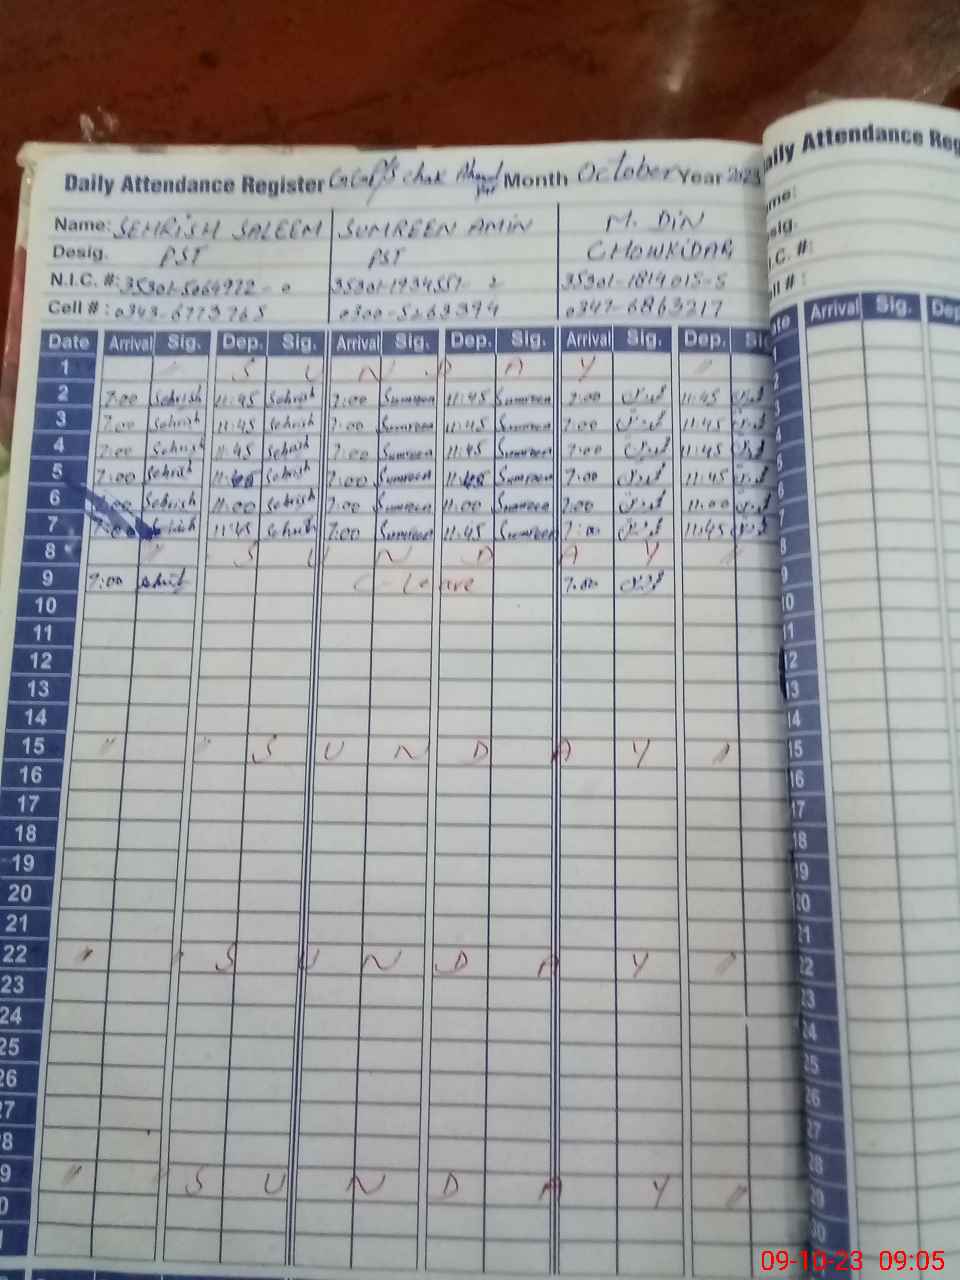 Daily Attendance Register GGPS chak Ahmad Month October Year 2023
Name: SEHRISH SALEEM SUMREEN AMIN M. DIN
Desig. PST PST CHOWKIDAR
N.I.C. #: 35301-5064972-0 35301-1934557-2 35301-1814015-5
Cell # : 0343-6773765 0300-5263394 0347-6863217
Date Arrival Sig. Dep. Sig. Arrival Sig. Dep. Sig. Arrival Sig. Dep. Sig
1 " S U N D A Y "
2 7:00 Sehrish 11:45 Sehrish 7:00 Sumreen 11:45 Sumreen 7:00 11:45
3 7:00 Sehrish 11:45 Sehrish 7:00 Sumreen 11:45 Sumreen 7:00 11:45
4 7:00 Sehrish 11:45 Sehrish 7:00 Sumreen 11:45 Sumreen 7:00 11:45
5 7:00 Sehrish 11:45 Sehrish 7:00 Sumreen 11:45 Sumreen 7:00 11:45
6 7:00 Sehrish 11:00 Sehrish 7:00 Sumreen 11:00 Sumreen 7:00 11:00
7 7:00 Sehrish 11:45 Sehrish 7:00 Sumreen 11:45 Sumreen 7:00 11:45
8 " S U N D A Y "
9 7:00 C-Leave 7:00
10
11
12
13
14
15 " " S U N D A Y "
16
17
18
19
20
21
22 " " S U N D A Y "
23
24
25
26
27
8
9 " " S U N D A Y "
0
aily Attendance Reg
me:
sig.
.C. #:
ll # :
te Arrival Sig. Dep
1
2
3
4
5
6
7
8
9
10
11
12
13
14
15
16
17
18
19
20
21
22
23
24
25
26
27
28
29
30
09-10-23 09:05